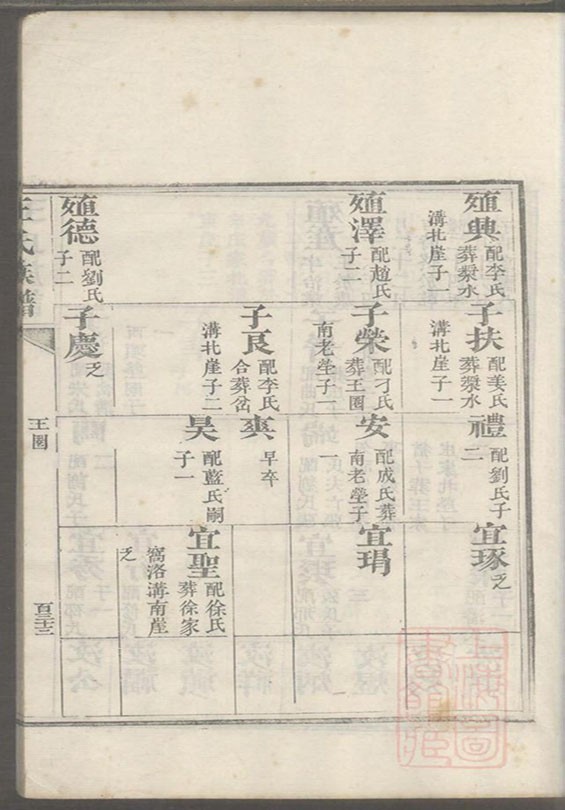 殖典 配李氏
葬漿水
溝北崖子一
殖澤 配趙氏
子二
殖德 配劉氏
子二
子扶 配姜氏
葬漿水
溝北崖子一
子榮 配刁氏
葬王圈
南老塋子一
子良 配李氏
合葬岔
溝北崖子二
子慶 乏
禮 配劉氏子
二
安 配成氏葬
南老塋子
一
爽 早卒
昊 配藍氏嗣
子一
宜琢 乏
宜琄
宜聖 配徐氏
葬徐家
窩洛溝南崖
乏
王氏族譜
王圈
百三十三